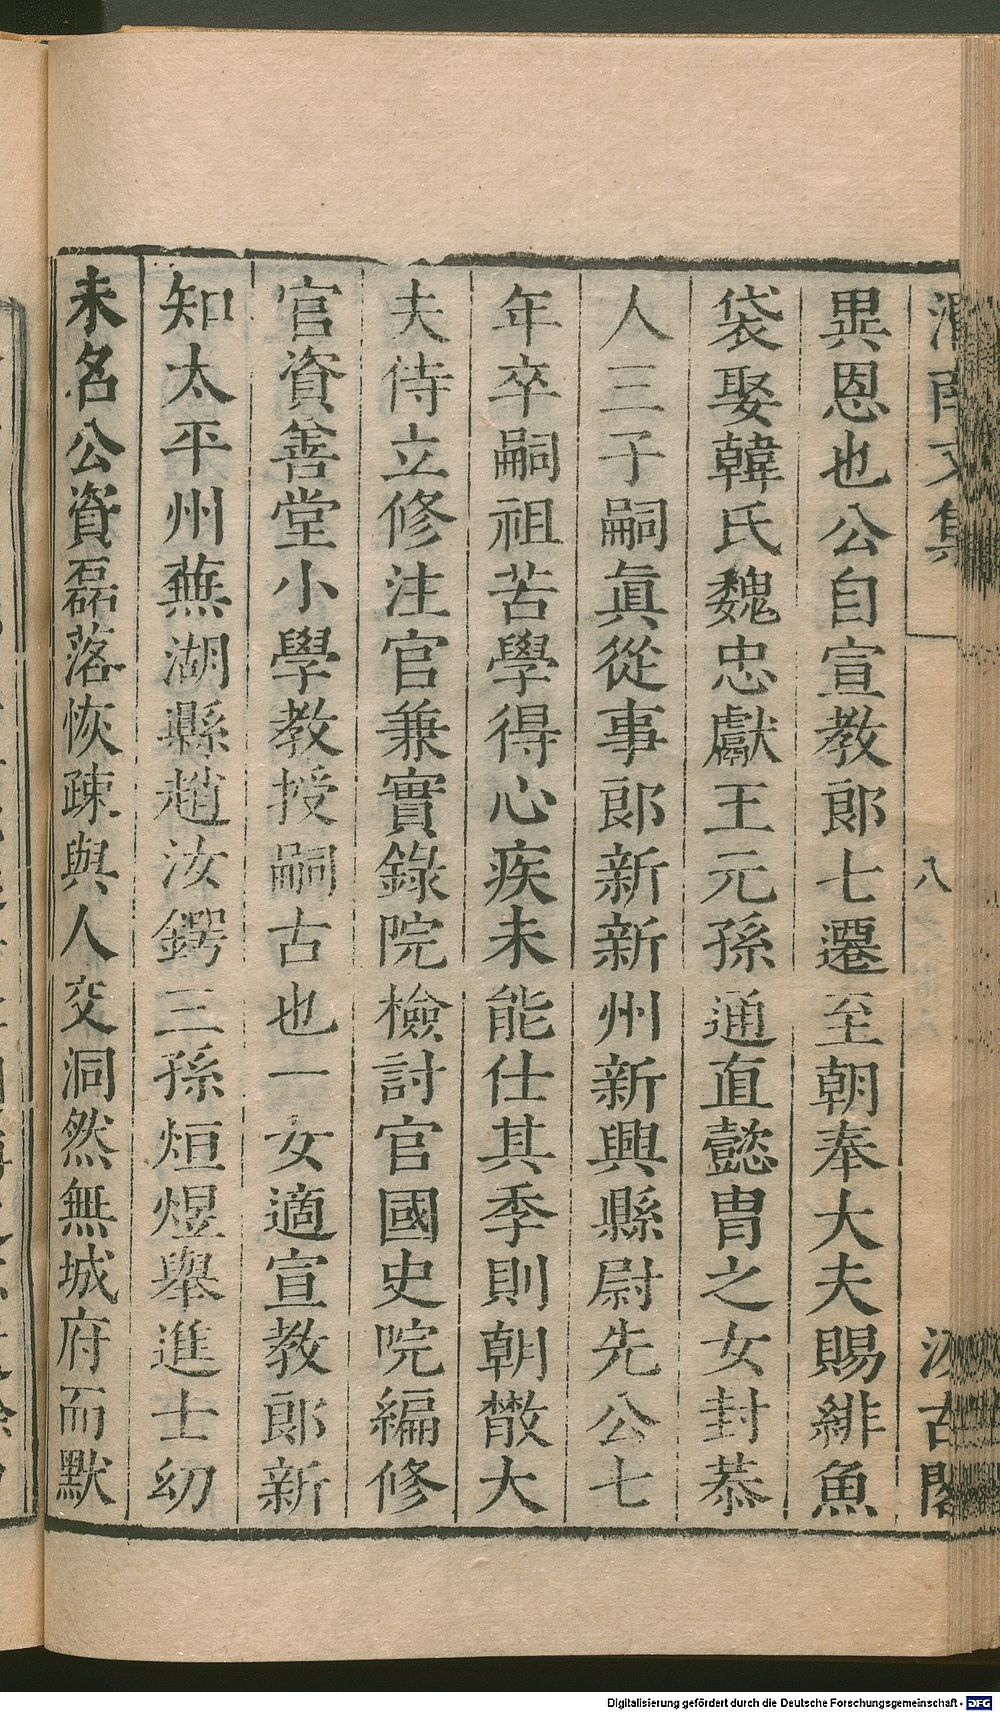 渭南文集 八 汲古閣
異恩也公自宣教郎七遷至朝奉大夫賜緋魚
袋娶韓氏魏忠獻王元孫通直懿胄之女封恭
人三子嗣眞從事郎新新州新興縣尉先公七
年卒嗣祖苦學得心疾未能仕其季則朝散大
夫侍立修注官兼實錄院檢討官國史院編修
官資善堂小學教授嗣古也一女適宣教郎新
知太平州蕪湖縣趙汝鍔三孫烜煜舉進士幼
未名公資磊落恢疎與人交洞然無城府而默
Digitalisierung gefördert durch die Deutsche Forschungsgemeinschaft - DFG